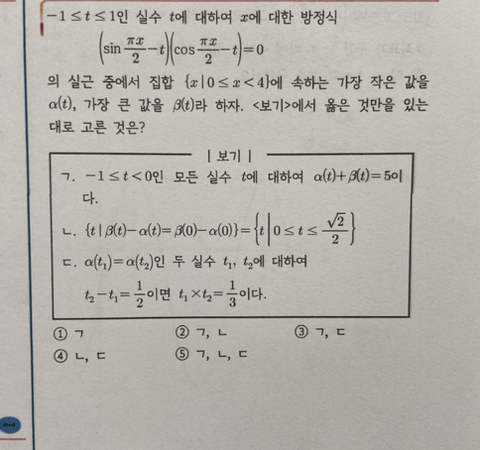 -1≤t≤1인 실수 t에 대하여 x에 대한 방정식
(sin πx/2 - t)(cos πx/2 - t)=0
의 실근 중에서 집합 {x|0≤x<4}에 속하는 가장 작은 값을
α(t), 가장 큰 값을 β(t)라 하자. <보기>에서 옳은 것만을 있는
대로 고른 것은?
| 보기 |
ㄱ. -1≤t<0인 모든 실수 t에 대하여 α(t)+β(t)=5이
다.
ㄴ. {t|β(t)-α(t)=β(0)-α(0)}={t|0≤t≤√2/2}
ㄷ. α(t₁)=α(t₂)인 두 실수 t₁, t₂에 대하여
t₂-t₁=1/2이면 t₁×t₂=1/3이다.
① ㄱ ② ㄱ, ㄴ ③ ㄱ, ㄷ
④ ㄴ, ㄷ ⑤ ㄱ, ㄴ, ㄷ